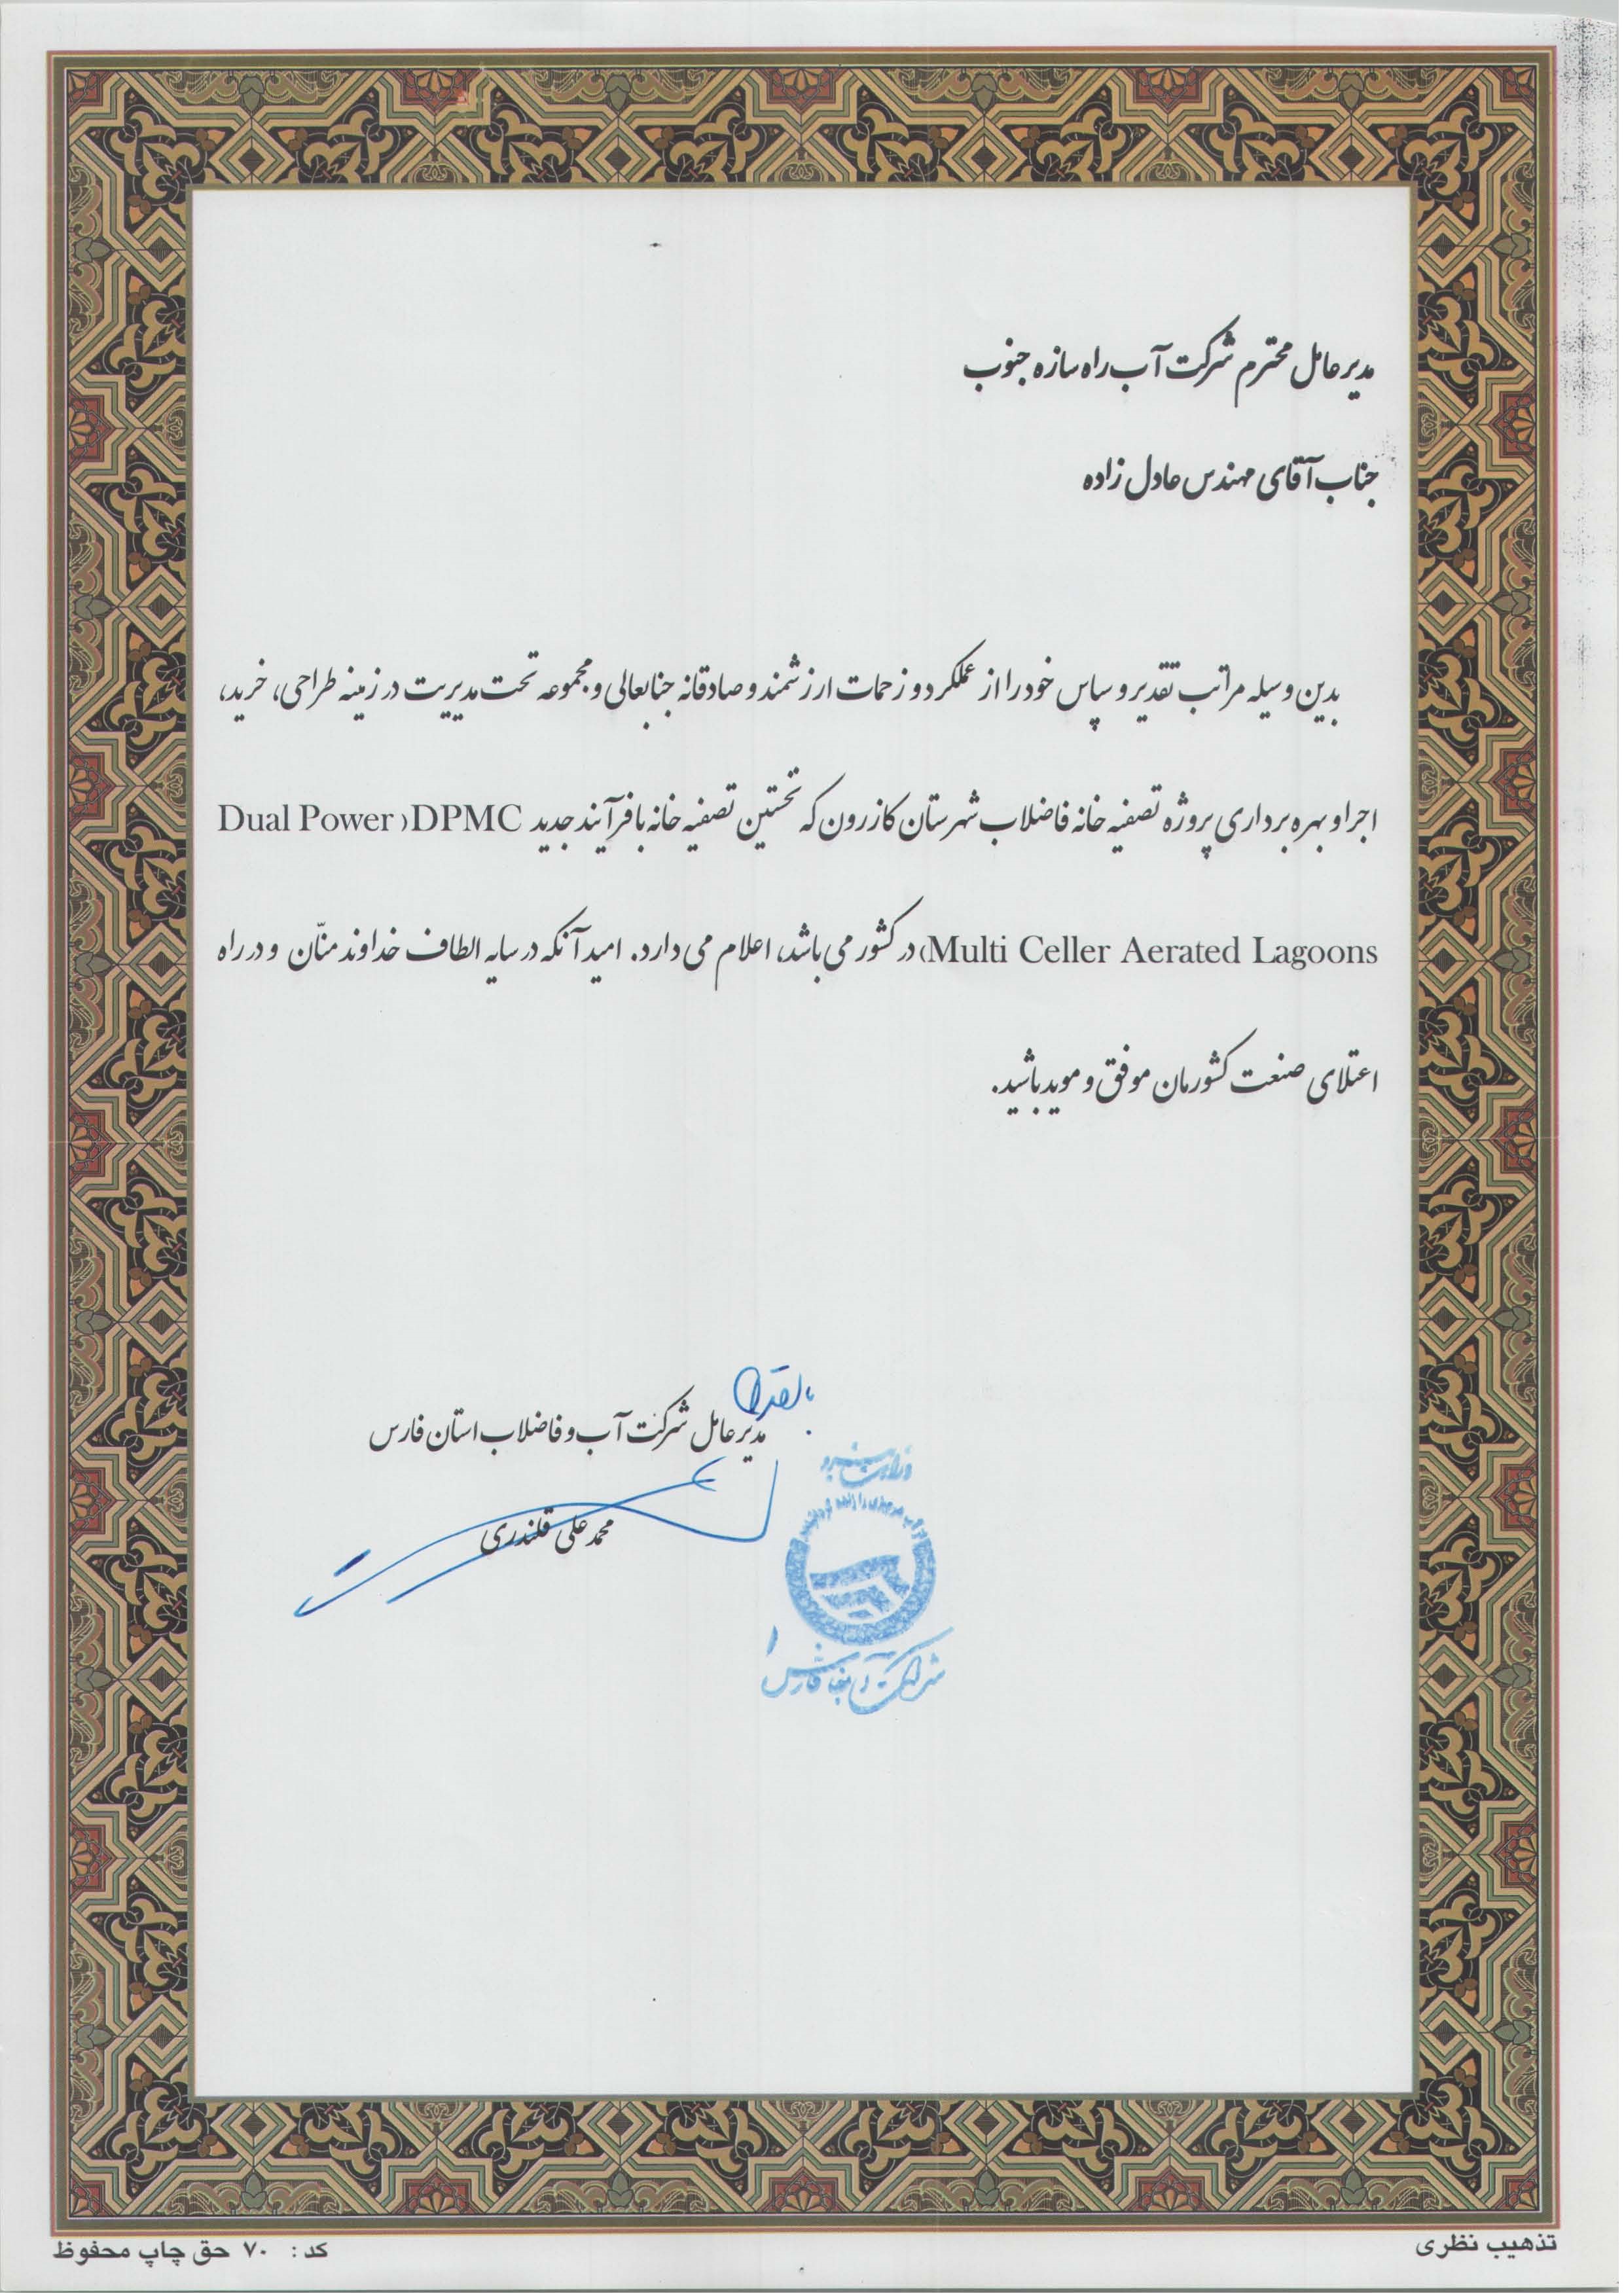 مدیر عامل محترم شرکت آب راه سازه جنوب
جناب آقای مهندس عادل زاده
بدین وسیله مراتب تقدیر و سپاس خود را از عملکرد و زحمات ارزشمند و صادقانه جنابعالی و مجموعه تحت مدیریت در زمینه طراحی، خرید،
اجرا و بهره برداری پروژه تصفیه خانه فاضلاب شهرستان کازرون که نخستین تصفیه خانه با فرآیند جدید DPMC (Dual Power
Multi Celler Aerated Lagoons) در کشور می باشد، اعلام می دارد. امید آنکه در سایه الطاف خداوند منّان و در راه
اعتلای صنعت کشورمان موفق و موید باشید.
مدیر عامل شرکت آب و فاضلاب استان فارس
محمد علی قلندری
وزارت نیرو
تذهیب نظری
کد : ۷۰ حق چاپ محفوظ